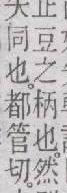 豆之柄也。然
同也。都管切